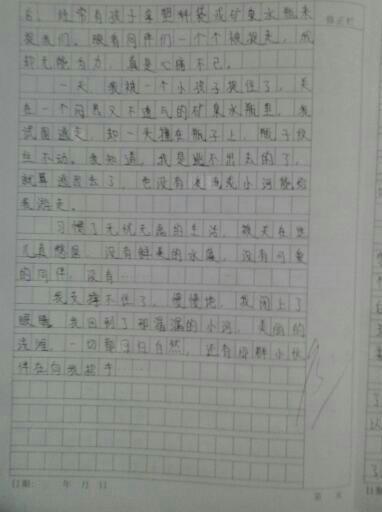 了，经常有孩子拿塑料袋或矿泉水瓶来
捉我们。眼看同伴们一个个被捉走，我
却无能为力，真是心痛不已。
一天，我被一个小孩子捉住了，关
在一个闷热又不透气的矿泉水瓶里，我
试图逃走，却一头撞在瓶子上，瓶子纹
丝不动。我知道，我是逃不出去的了，
就算逃出去了，也没有清清小河能给
我游走。
习惯了无忧无虑的生活，被关在这
儿真憋屈。没有鲜美的水藻，没有可爱
的同伴，没有……
我支撑不住了，慢慢地，我闭上了
眼睛，我回到了那潺潺的小河，美丽的
浅滩，一切都回归自然，还有那群小伙
伴在向我招手……
日期： 年 月 日
第 页
日期